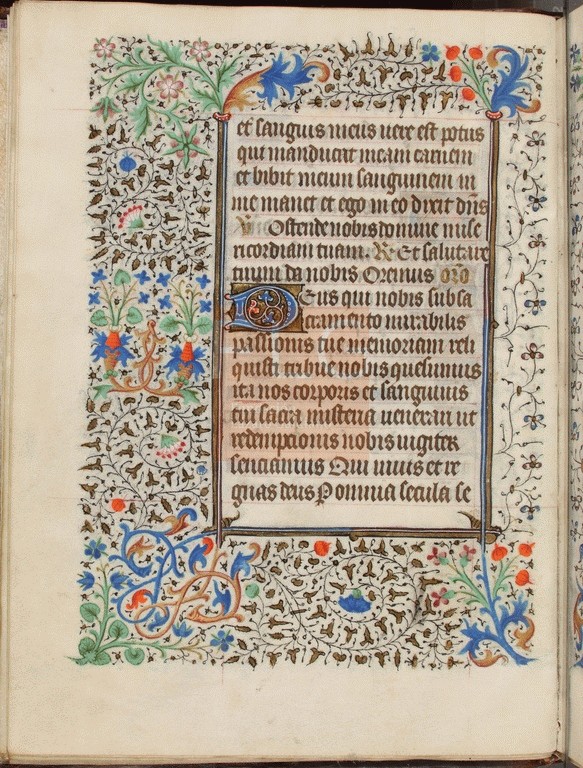 et sanguis meus vere est potus
qui manducat meam carnem
et bibit meum sanguinem in
me manet et ego in eo dixit dñs
Ostende nobis domine mise
ricordiam tuam. R Et salutare
tuum da nobis Oremus oro
Deus qui nobis subsa
cramento mirabilis
passionis tue memoriam reli
quisti tribue nobis quesumus
ita nos corporis et sanguinis
tui sacra misteria venerari ut
redempcionis nobis iugiter
senciamus Qui vivis et re
gnas deus P omnia secula se